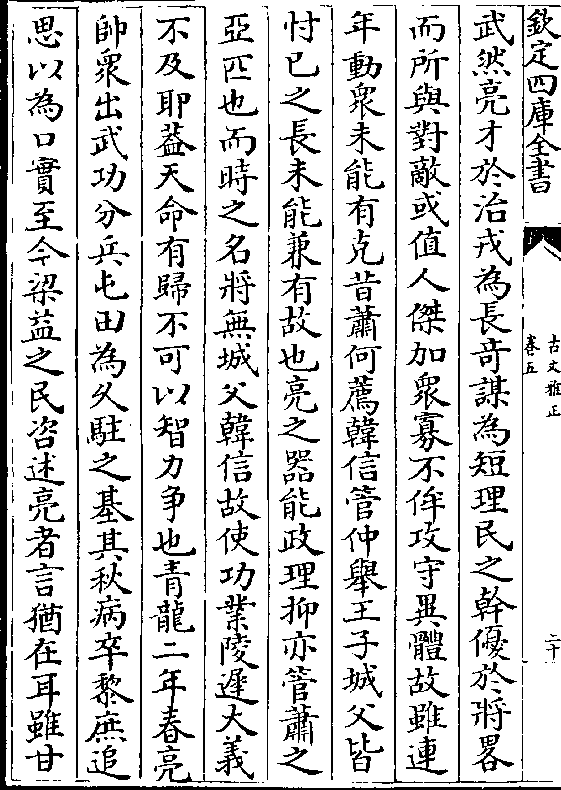 欽定四庫全書
古文雅正
卷五
二十
武然亮才於治戎為長奇謀為短理民之幹優於將畧
而所與對敵或值人傑加衆寡不侔攻守異體故雖連
年動衆未能有克昔蕭何薦韓信管仲舉王子城父皆
忖已之長未能兼有故也亮之器能政理抑亦管蕭之
亞匹也而時之名將無城父韓信故使功業陵遲大義
不及耶葢天命有歸不可以智力争也青龍二年春亮
帥衆出武功分兵屯田為久駐之基其秋病卒黎庶追
思以為口實至今梁益之民咨述亮者言猶在耳雖甘